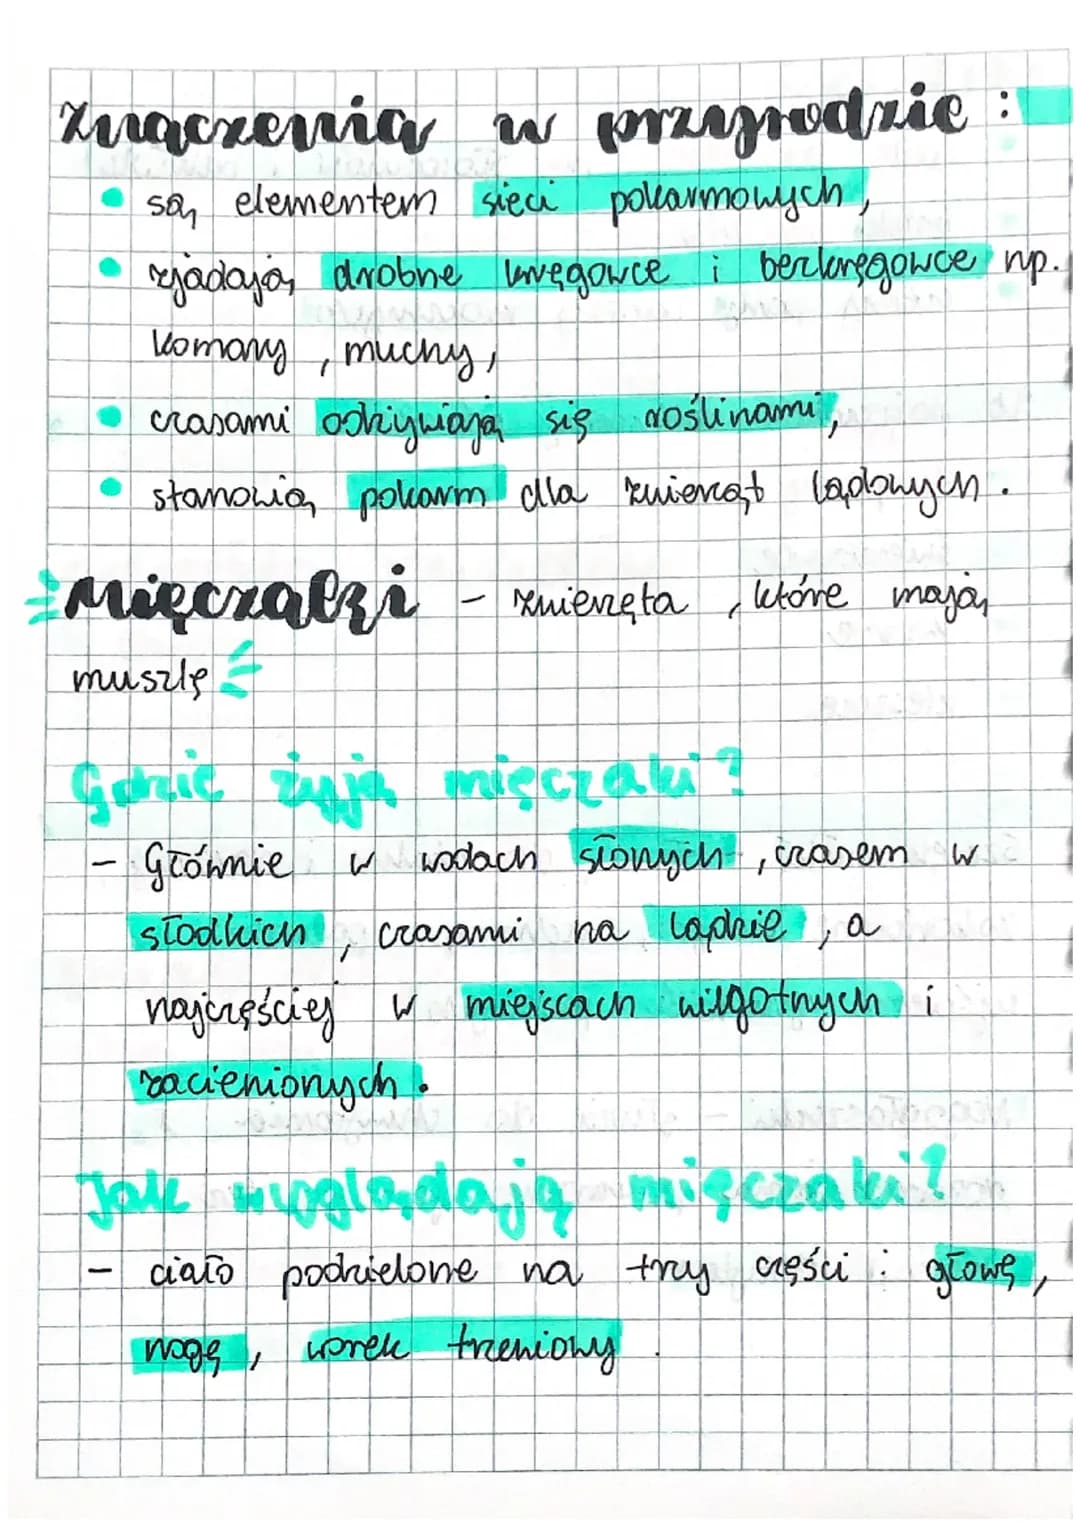 Znaczenia w przyrodzie :
są elementem sieci pokarmowych,
zjadają drobne kręgowce i bezkręgowce np.
komary, muchy,
czasami odżywiają się roślinami,
stanowią pokarm dla zwierząt lądowych.
Mięczaki - zwierzęta, które mają
muszlę
Gdzie żyją mięczaki?
- Głównie w wodach słonych, czasem w
słodkich, czasami na lądzie, a
najczęściej w miejscach wilgotnych i
zacienionych.
Jak wyglądają mięczaki?
- ciało podzielone na trzy części : głowę,
nogę, worek trzeniowy.